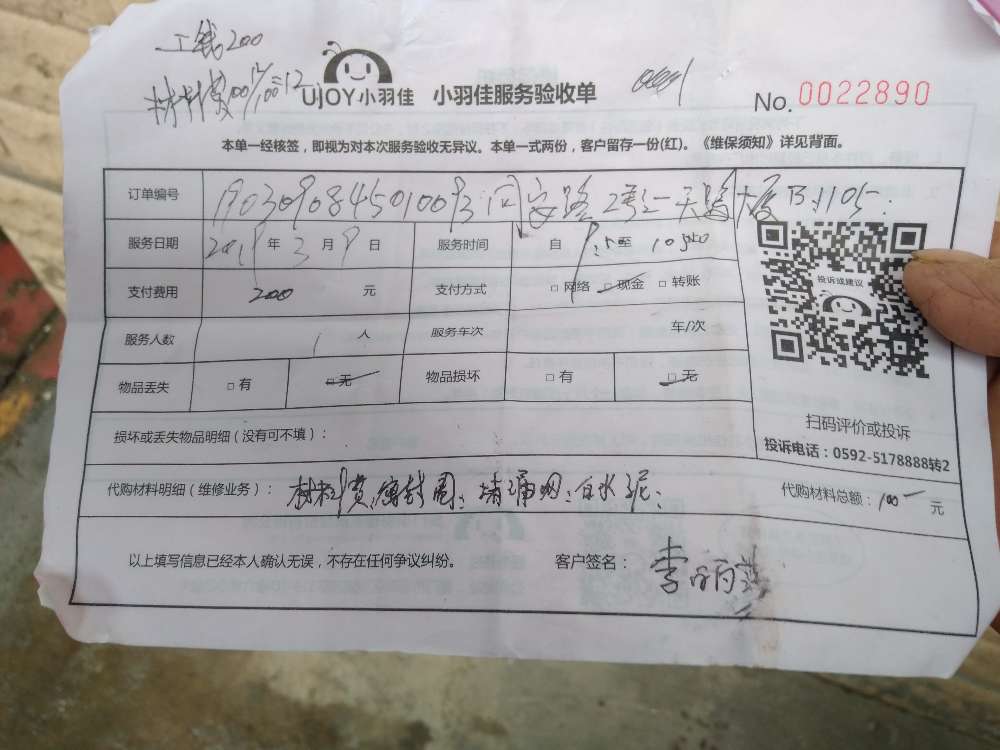 工钱200
材料费100
UJOY小羽佳 小羽佳服务验收单 No. 0022890
本单一经核签，即视为对本次服务验收无异议。本单一式两份，客户留存一份(红)。《维保须知》详见背面。
订单编号
服务日期 2019 年 3 月 9 日 服务时间 自 至
支付费用 200 元 支付方式 □网络 □现金 □转账
服务人数 1 人 服务车次 车/次
物品丢失 □有 □无 物品损坏 □有 □无
投诉或建议
扫码评价或投诉
投诉电话：0592-5178888转2
损坏或丢失物品明细（没有可不填）：
代购材料明细（维修业务）： 材料费 代购材料总额：100 元
以上填写信息已经本人确认无误，不存在任何争议纠纷。 客户签名：